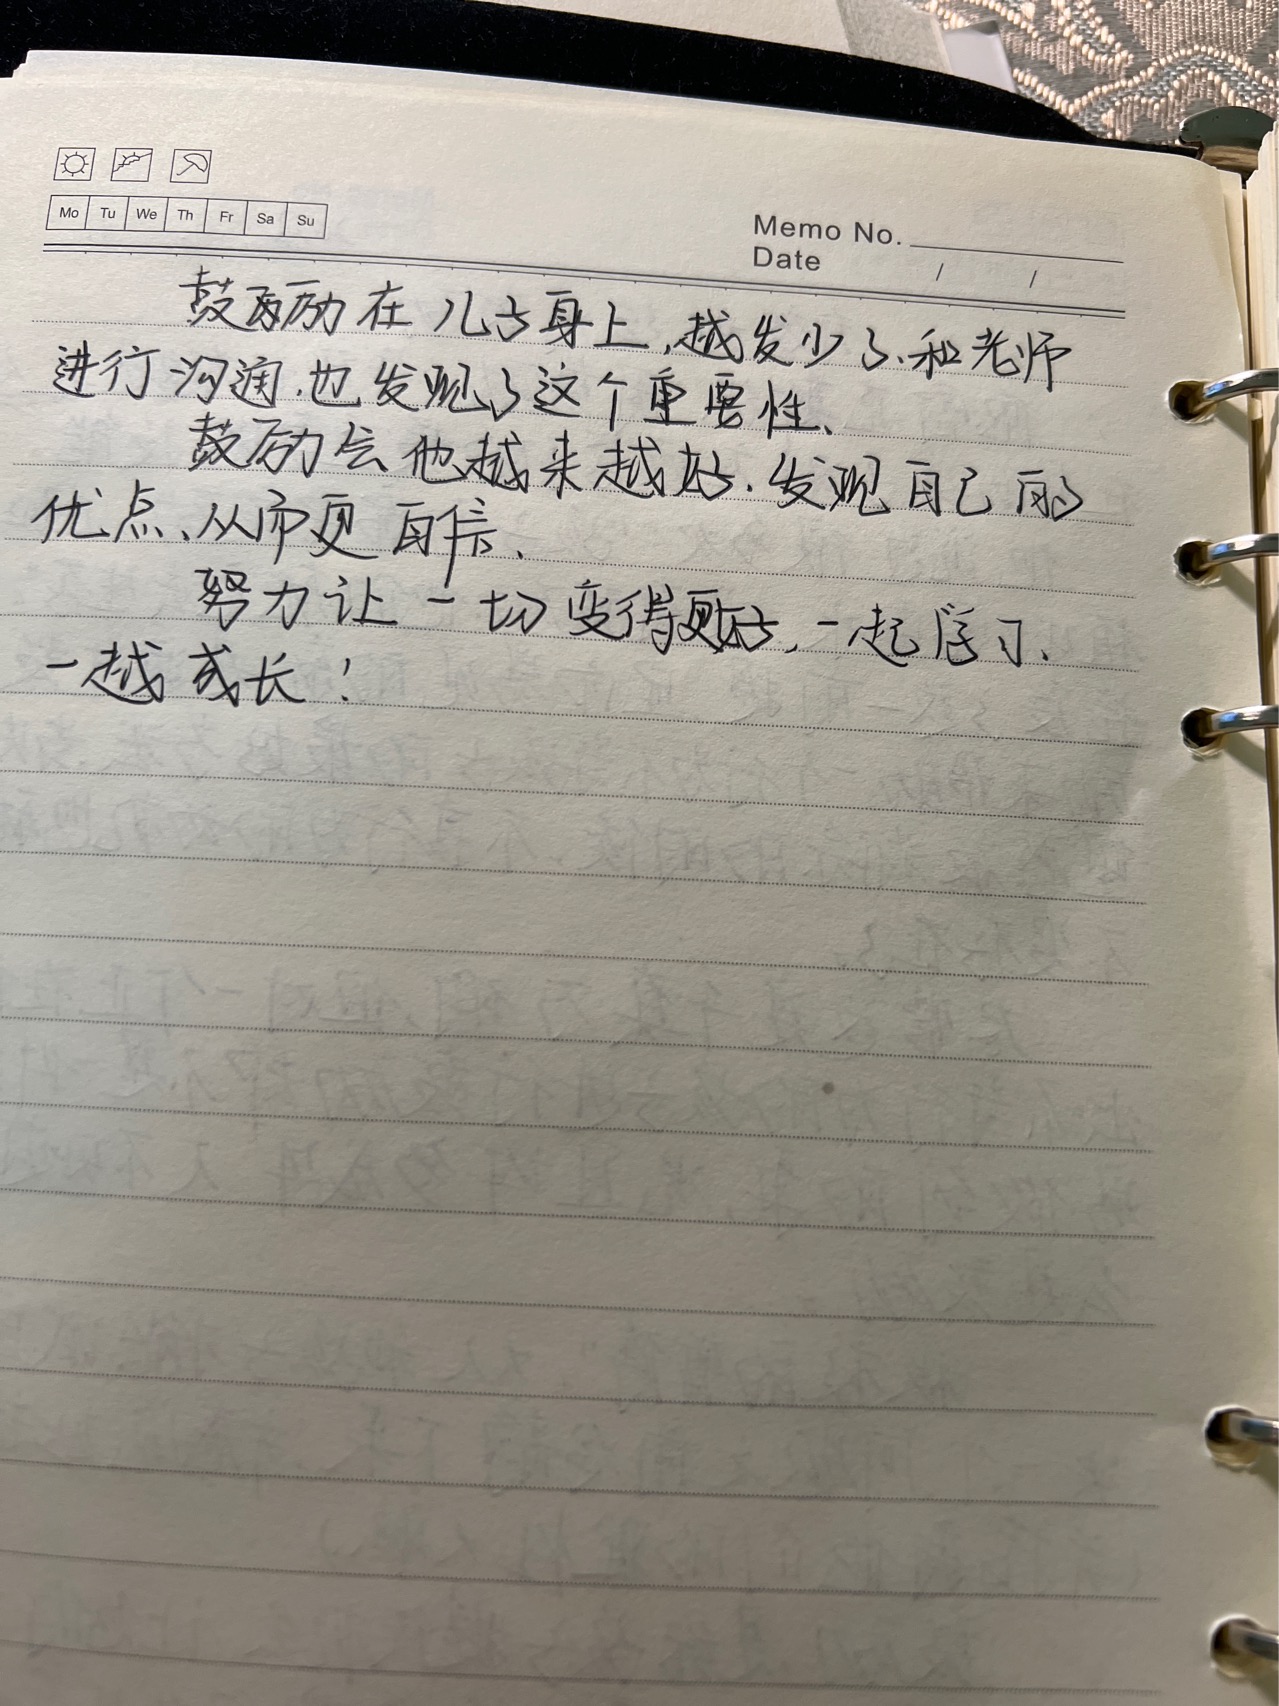 Mo Tu We Th Fr Sa Su
Memo No.
Date / /
鼓励在儿子身上,越发少了.和老师
进行沟通.也发现了这个重要性、
鼓励会他越来越好.发现自己的
优点、从而更自信、
努力让一切变得更好,一起学习、
一越成长!